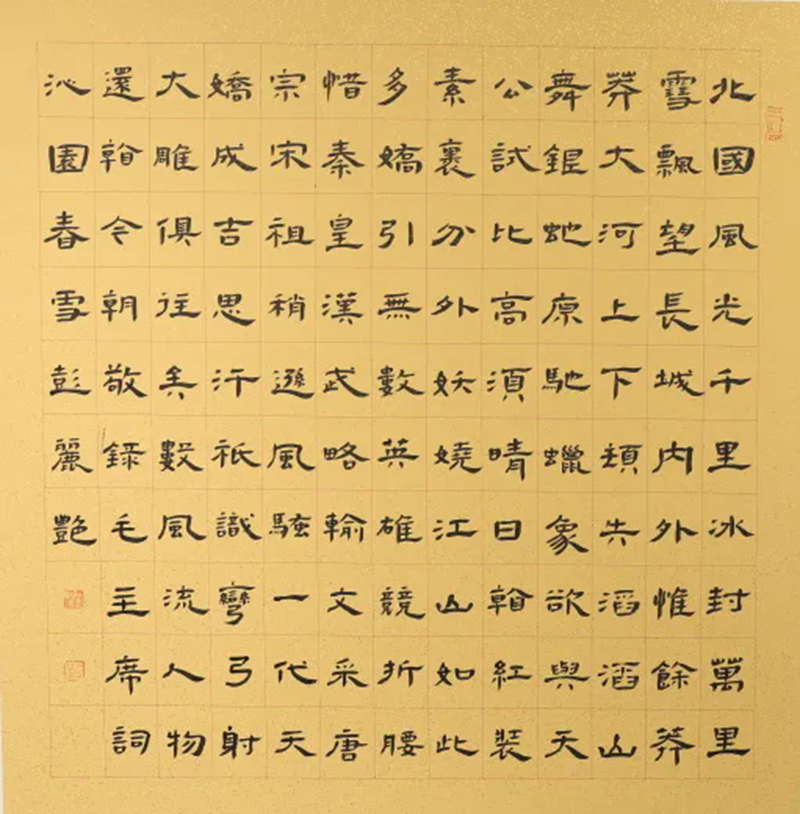 北國風光千里冰封萬里
雪飄望長城内外惟餘莽
莽大河上下頓失滔滔山
舞銀蛇原馳蠟象欲與天
公試比高須晴日看紅裝
素裹分外妖嬈江山如此
多嬌引無數英雄競折腰
惜秦皇漢武略輸文采唐
宗宋祖稍遜風騷一代天
嬌成吉思汗祇識彎弓射
大雕俱往矣數風流人物
還看今朝敬錄毛主席詞
沁園春雪彭麗艷